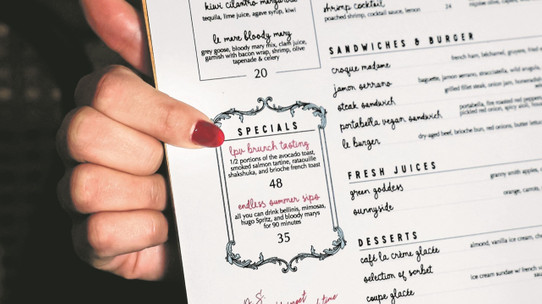 kiwi cilantro margarita
tequila, lime juice, agave syrup, kiwi
le mare bloody mary
grey goose, bloody mary mix, clam juice,
garnish with bacon wrap, shrimp, olive
tapenade & celery
20
SPECIALS
lpv brunch tasting
1/2 portions of the avocado toast,
smoked salmon tartine, ratatouille
shakshuka, and brioche french toast
48
endless summer sips
all you can drink bellinis, mimosas,
hugo Spritz, and bloody marys
for 90 minutes
35
P.S.
shrimp cocktail
poached shrimp, cocktail sauce, lemon 24
SANDWICHES & BURGER
croque madame french ham, béchamel, gruyere, fried
jamon serrano baguette, jamon serrano, stracciatella, wild
steak sandwich grilled filet steak, onion jam, horseradish
portabella vegan sandwich portabella, fire roasted red
pickled red onion, spicy aioli,
le burger dry-aged beef, brioche bun, red onions, butter
FRESH JUICES
green goddess granny smith apples,
sunnyside orange, carrot,
DESSERTS
café la crème glacée almond, vanilla ice cream,
selection of sorbet
coupe glacée ice cream sundae w/ fresh